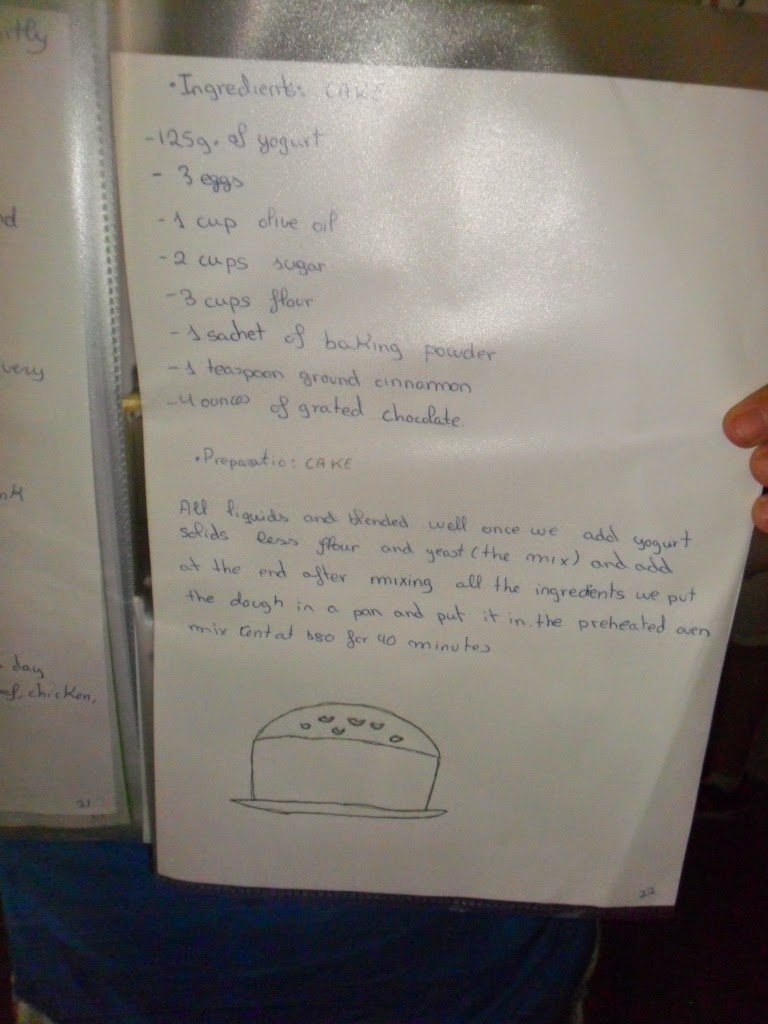 rtly
nd
very
nk
day
ef, chicken,
21
• Ingredients: CAKE
- 125g. of yogurt
- 3 eggs
- 1 cup olive oil
- 2 cups sugar
- 3 cups flour
- 1 sachet of baking powder
- 1 teaspoon ground cinnamon
- 4 ounces of grated chocolate.
• Preparatio: CAKE
All liquids and blended well once we add yogurt
solids less flour and yeast (the mix) and add
at the end after mixing all the ingredients we put
the dough in a pan and put it in the preheated oven
mix at 180 for 40 minutes
22